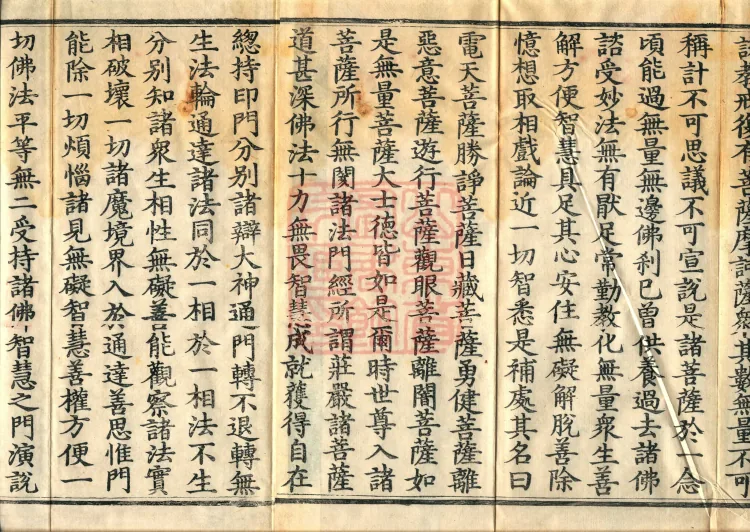 議不可
稱計不可思議不可宣說是諸菩薩於一念
頃能過無量無邊佛刹已曾供養過去諸佛
諮受妙法無有厭足常勤教化無量衆生善
解方便智慧具足其心安住無礙解脫善除
憶想取相戲論近一切智悉是補處其名曰
電天菩薩勝諍菩薩日藏菩薩勇健菩薩離
惡意菩薩遊行菩薩觀眼菩薩離闇菩薩如
是無量菩薩大士德皆如是爾時世尊入諸
菩薩所行無閡諸法門經所謂莊嚴諸菩薩
道甚深佛法十力無畏智慧成就獲得自在
總持印門分別諸辯大神通門轉不退轉無
生法輪通達諸法同於一相於一相法不生
分別知諸衆生相性無礙善能觀察諸法實
相破壞一切諸魔境界入於通達善思惟門
能除一切煩惱諸見無礙智慧善權方便一
切佛法平等無二受持諸佛智慧之門演說